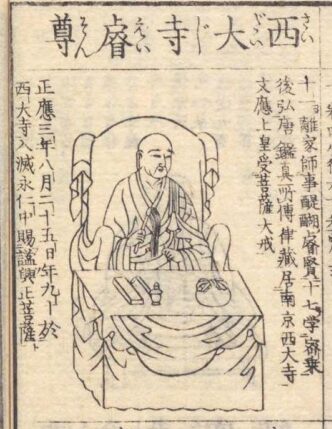 西大寺睿尊
さいだいじえいそん
十一離家師事醍醐睿賢十七学密乗
後弘唐鑑真所傳律藏居南京西大寺
文應上皇受菩薩大戒
正應三年八月二十五日年九十於
西大寺入滅永仁中賜謚興正菩薩